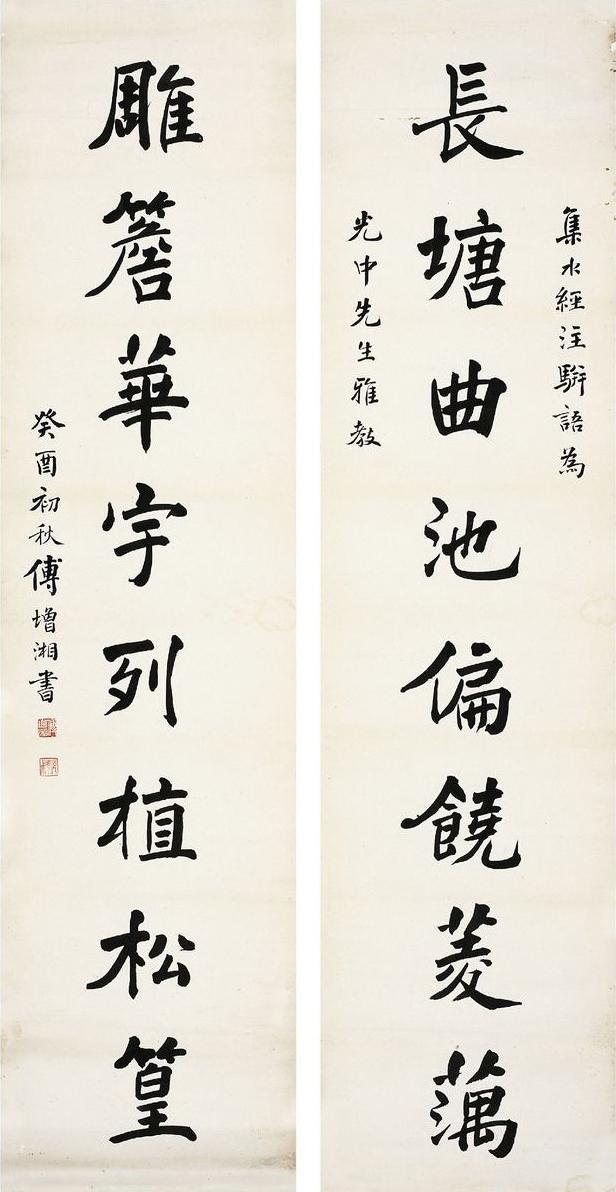 集水經注駢語為
長塘曲池偏饒菱蕅
光中先生雅教
雕簷華宇列植松篁
癸酉初秋傅增湘書